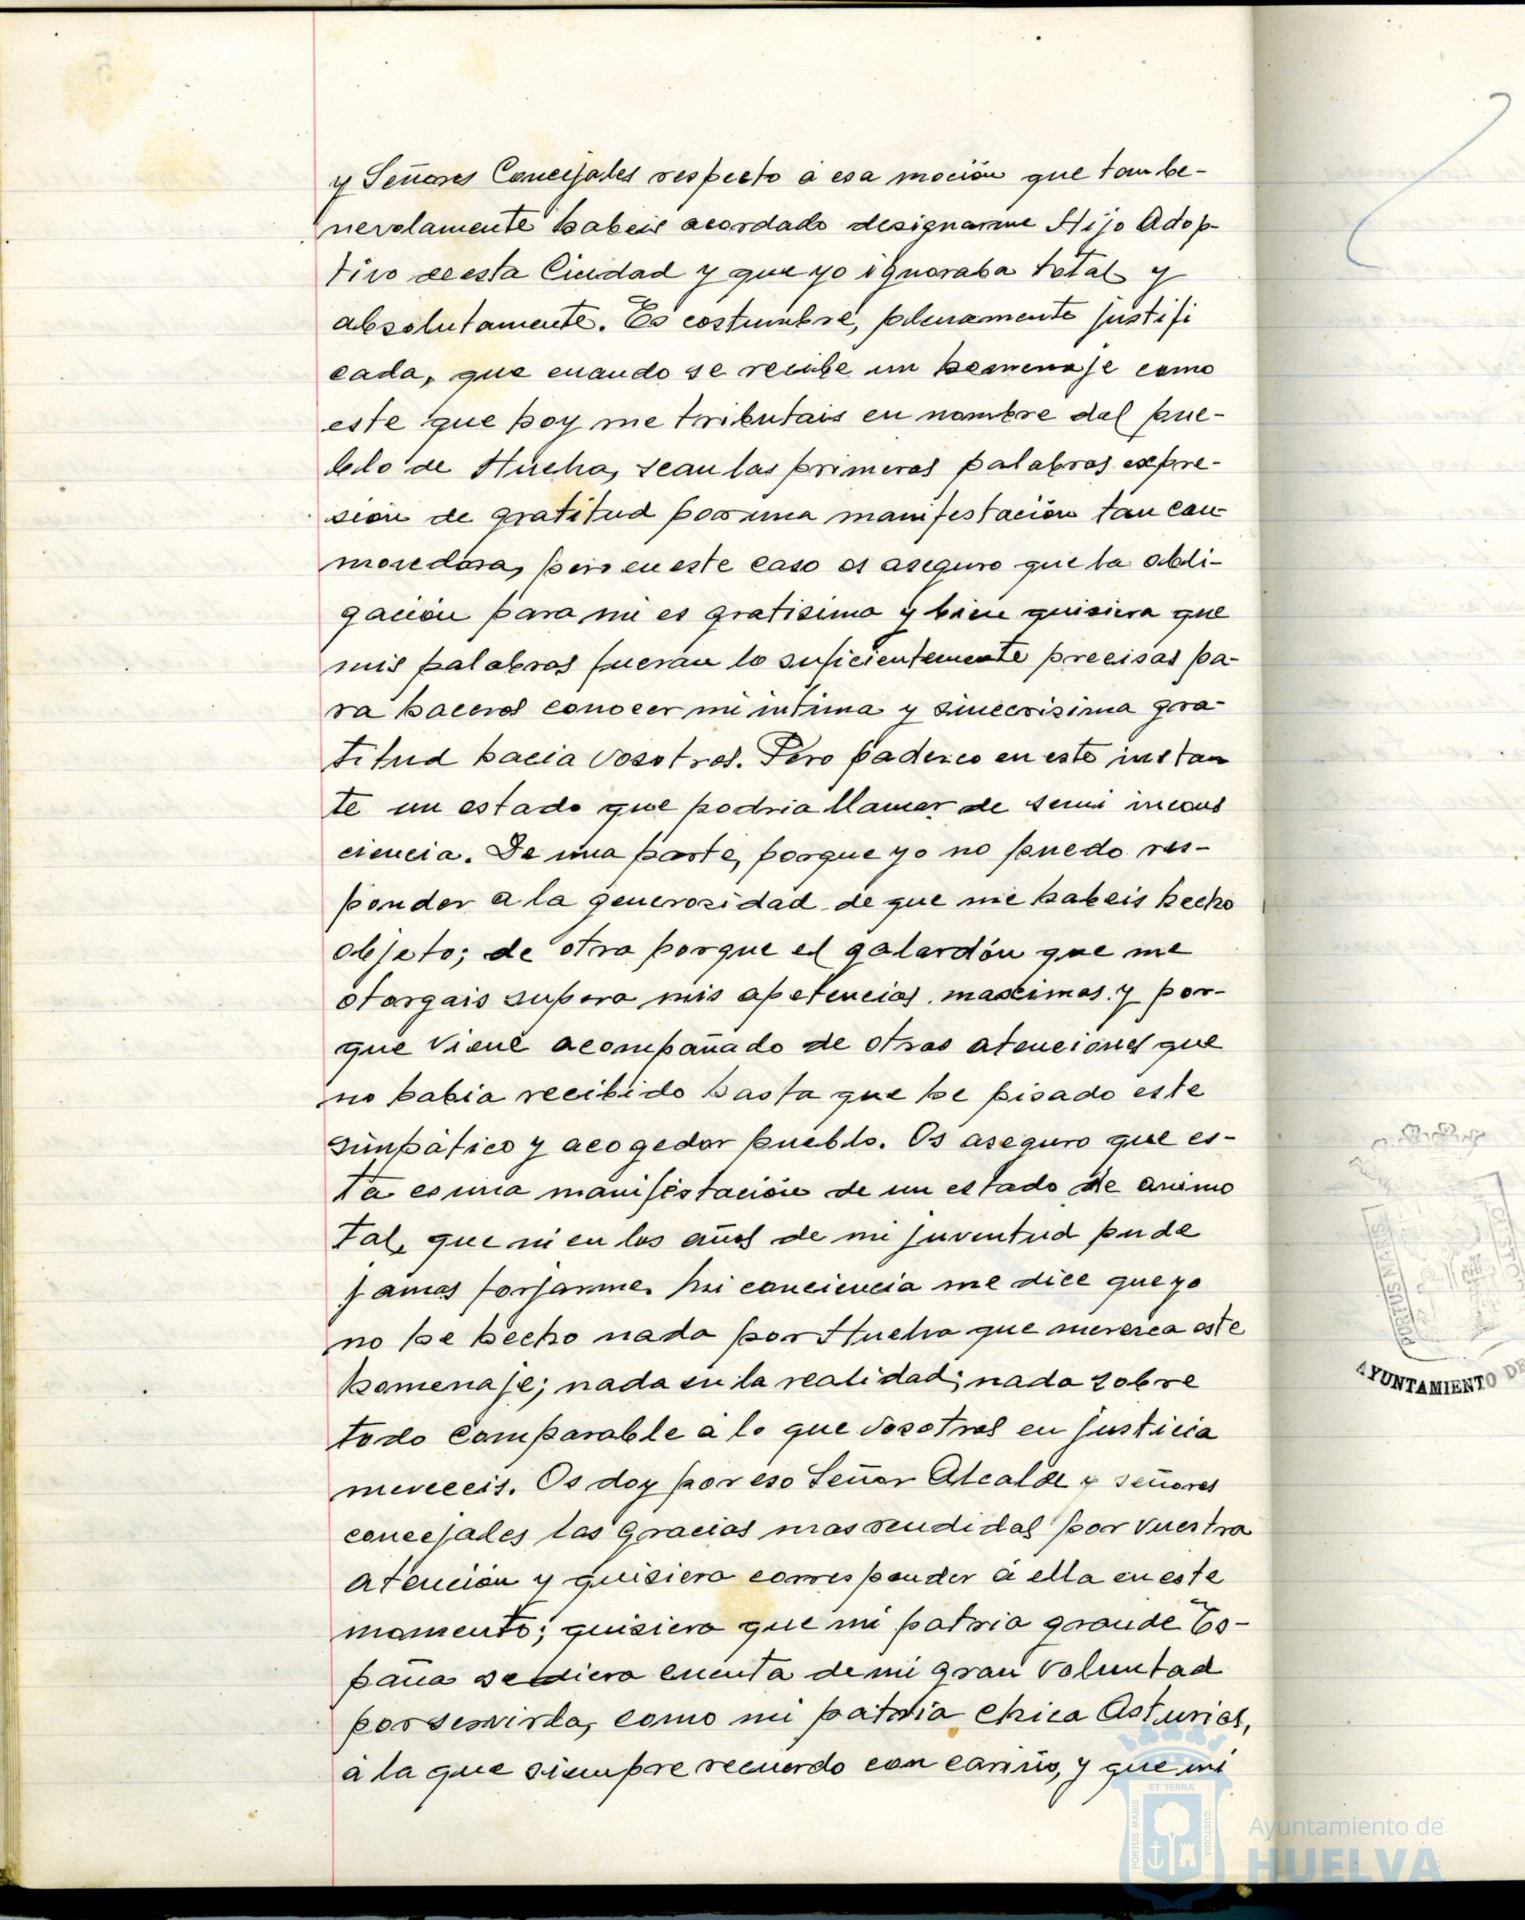 y Señores Concejales respecto á esa moción que tan be-
nevolamente habeis acordado designarme Hijo Adop-
tivo de esta Ciudad y que yo ignoraba total y
absolutamente. Es costumbre, plenamente justifi
cada, que cuando se recibe un homenaje como
este que hoy me tributais en nombre del pue-
blo de Huelva, sean las primeras palabras expre-
sión de gratitud por una manifestación tan con-
movedora, pero en este caso os aseguro que la obli-
gación para mi es gratisima y bien quisiera que
mis palabras fueran lo suficientemente precisas pa-
ra haceros conocer mi intima y sincerisima gra-
titud hacia vosotros. Pero padezco en este instan
te un estado que podria llamar de semi incons
ciencia. De una parte, porque yo no puedo res-
ponder a la generosidad de que me habeis hecho
objeto; de otra porque el galardón que me
otorgais supera mis apetencias maximas y por-
que viene acompañado de otras atenciones que
no habia recibido hasta que he pisado este
simpático y acogedor pueblo. Os aseguro que es-
ta es una manifestación de un estado de animo
tal, que ni en los años de mi juventud pude
jamas forjarme. Mi conciencia me dice que yo
no he hecho nada por Huelva que merezca este
homenaje; nada en la realidad; nada sobre
todo comparable á lo que vosotros en justicia
mereceis. Os doy por eso Señor Alcalde y señores
concejales las gracias mas rendidas por vuestra
atención y quisiera corresponder á ella en este
momento; quisiera que mi patria grande Es-
paña se diera cuenta de mi gran voluntad
por servirla, como mi patria chica Asturias,
á la que siempre recuerdo con cariño, y que mi
PORTUS MARIS
AYUNTAMIENTO DE
ET TERRÆ
PORTUS MARIS
CUSTODIA
Ayuntamiento de
HUELVA